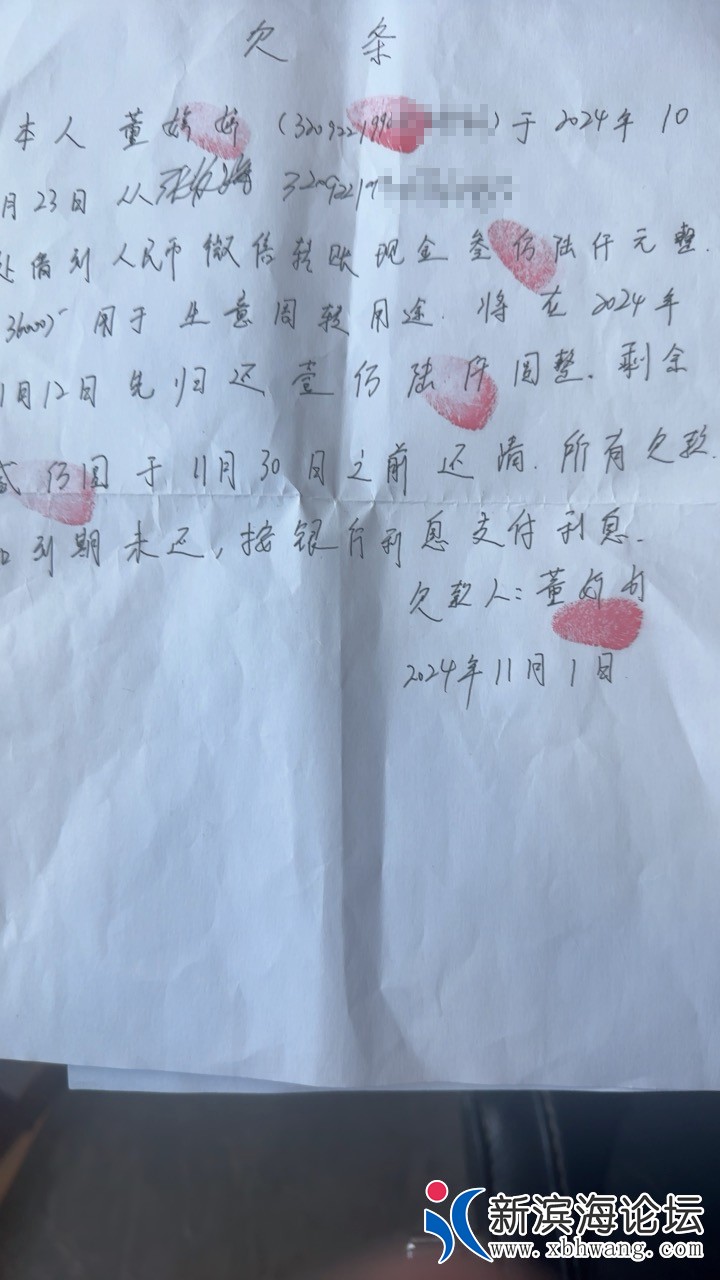 欠 条
本人 董娇娇 (320922199 ) 于 2024年 10
月23日 从 320921
借到人民币 微信转账 现金 叁仿陆仟元整.
36000 用于 生意周转用途. 将在 2024年
1月12日 先归还 壹仿陆仟圆整. 剩余
贰仿圆于 11月 30日之前 还清. 所有欠款.
到期未还, 按银行利息支付利息.
欠款人: 董娇娇
2024年 11月 1日
新滨海论坛
www.xbhwang.com